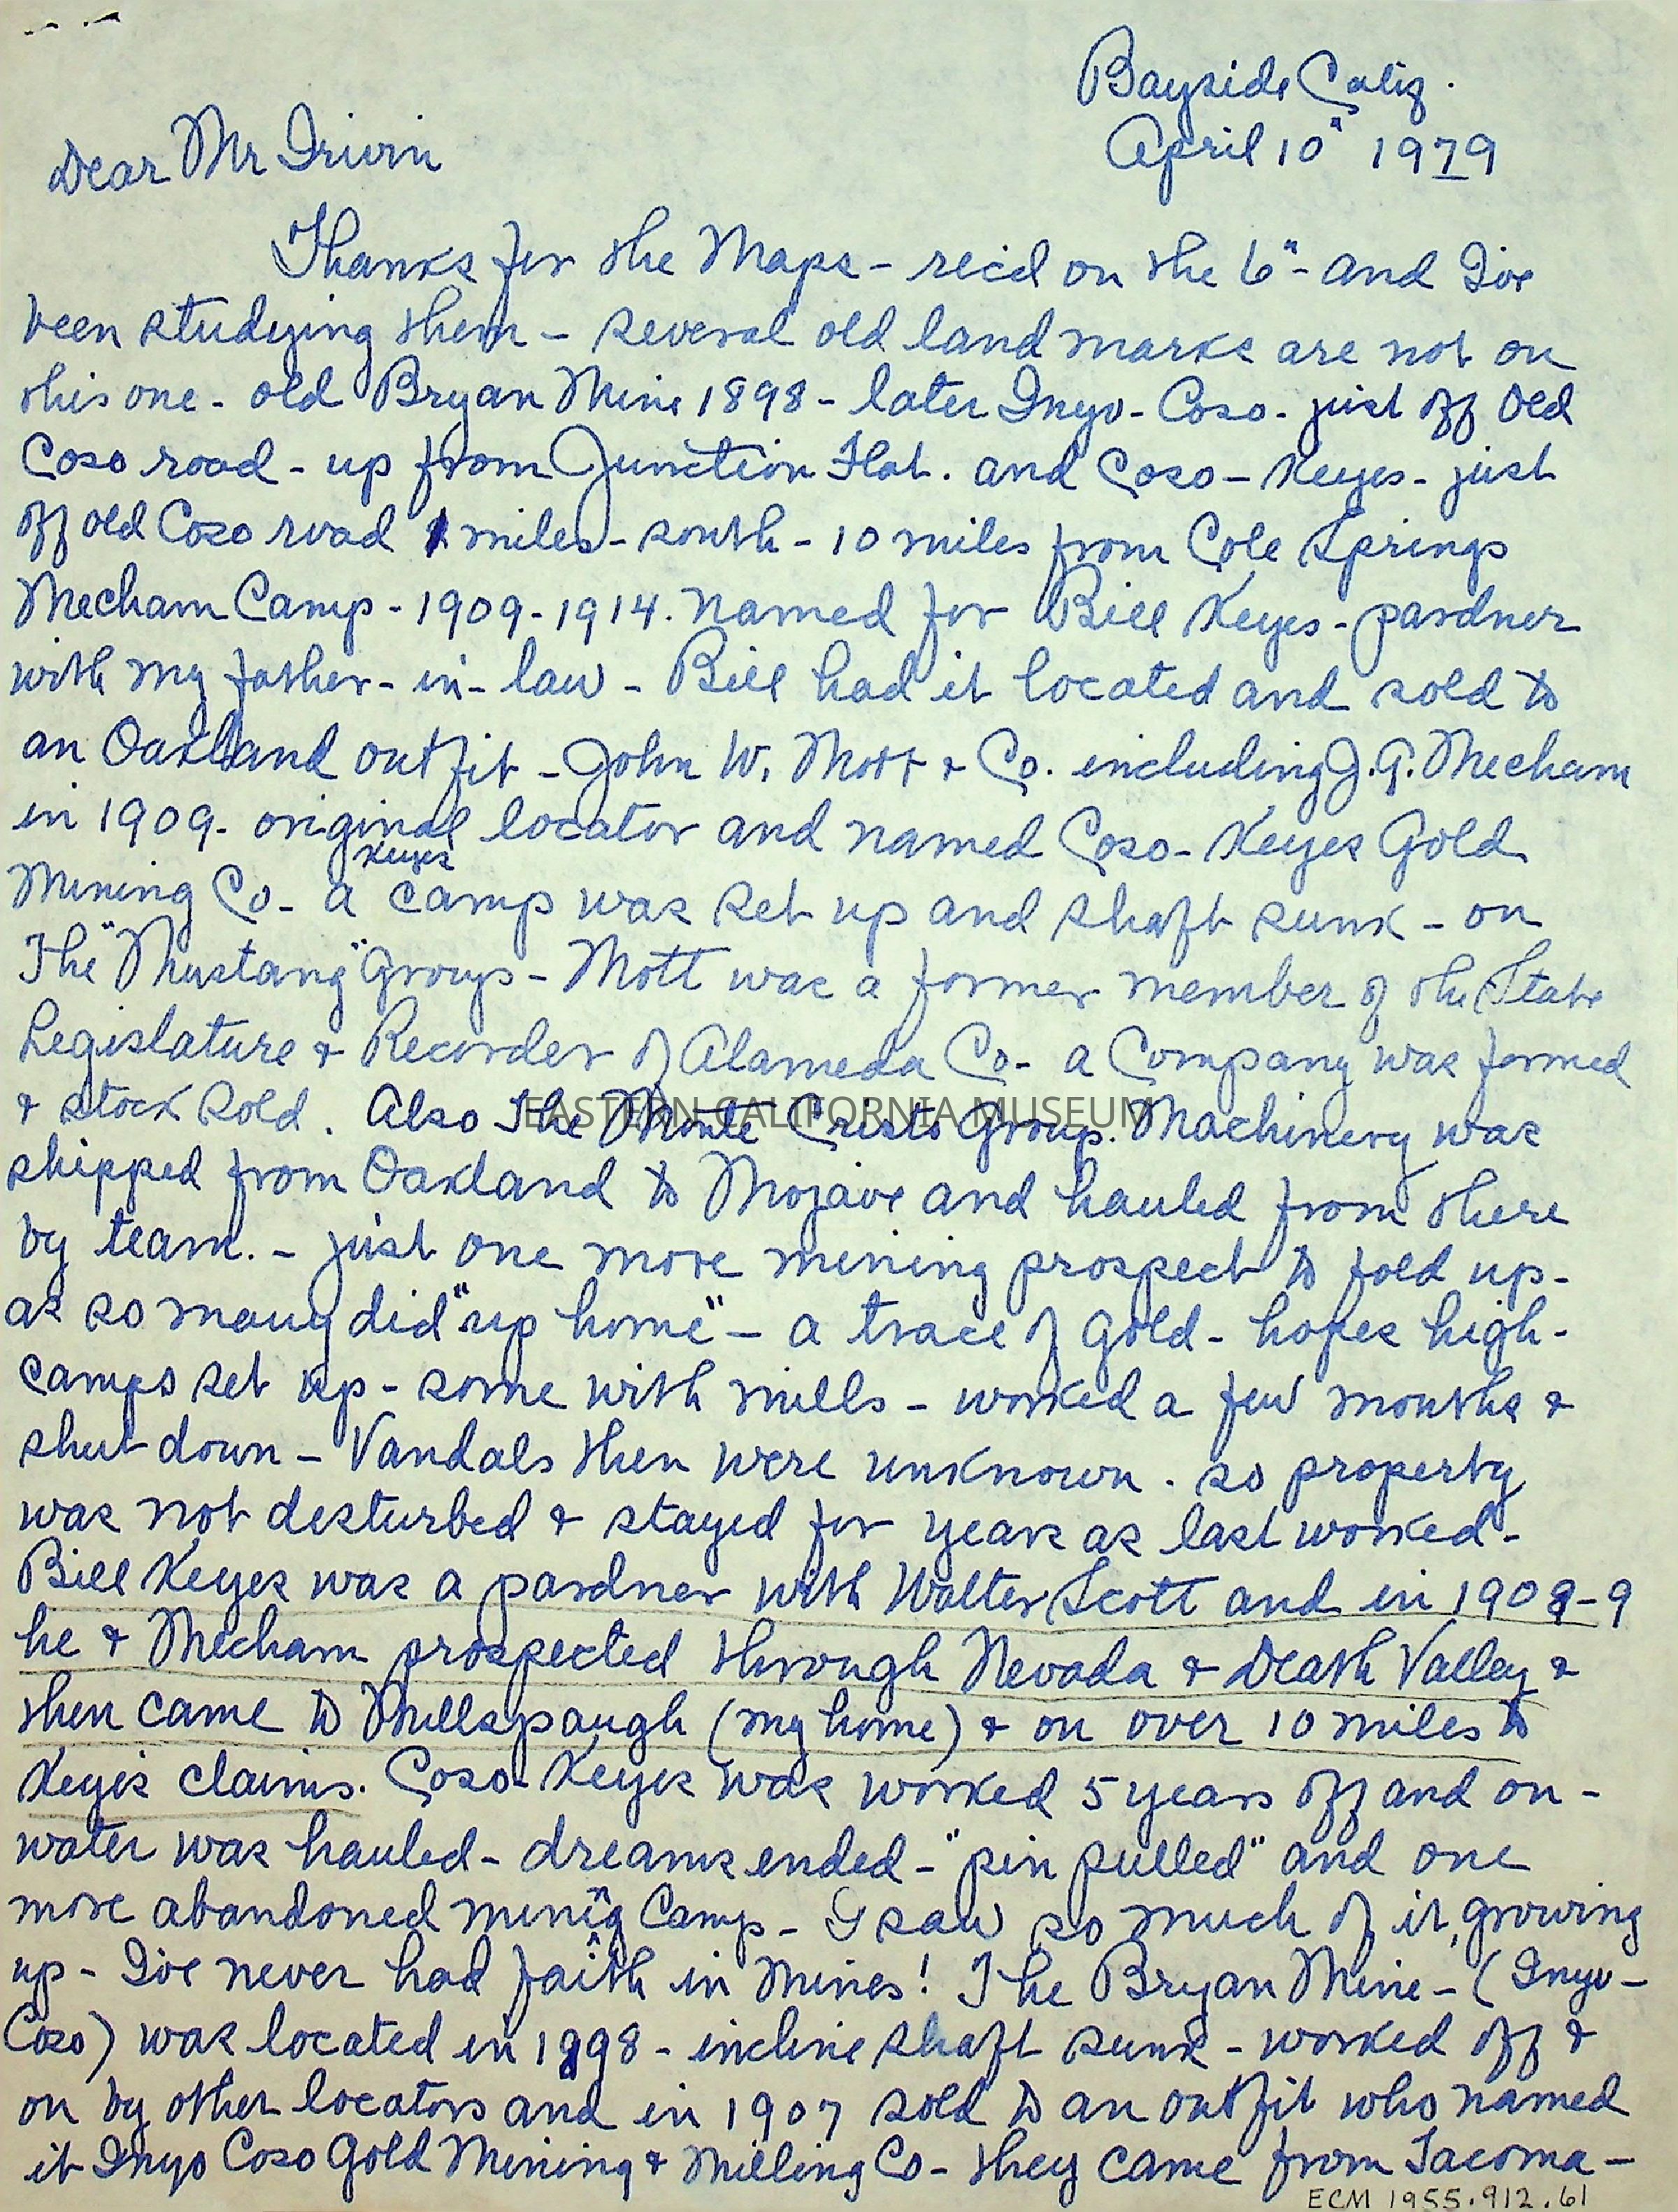 Bayside Calif.
April 10" 1979
Dear Mr Irwin
Thanks for the Maps - rec'd on the 6" - and I've
been studying them - several old land marks are not on
this one - old Bryan Mine 1898 - later Inyo - Coso - just off old
Coso road - up from Junction Flat. and Coso - Keyes - just
off old Coso road miles - south - 10 miles from Cole Springs
Mecham Camp - 1909 - 1914. named for Bill Keyes - pardner
with my father - in - law - Bill had it located and sold to
an Oakland outfit - John W. Mott & Co. including J.G. Mecham
in 1909 - original locator and named Coso - Keyes Gold
Keyes
Mining Co - a camp was set up and shaft sunk - on
The "Mustang" Group - Mott was a former member of the State
Legislature & Recorder of Alameda Co - a Company was formed
& stock sold. Also The Monte Cristo Group. Machinery was
EASTERN CALIFORNIA MUSEUM
shipped from Oakland to Mojave and hauled from there
by team. - just one more mining prospect to fold up -
as so many did "up home" - a trace of gold - hopes high -
camps set up - some with mills - worked a few months &
shut down - Vandals then were unknown. so property
was not desturbed & stayed for years as last worked -
Bill Keyes was a pardner with Walter Scott and in 1908-9
he & Mecham prospected through Nevada & Death Valley &
then came to Millspaugh (my home) & on over 10 miles to
Keyes claims. Coso - Keyes was worked 5 years off and on -
water was hauled - dreams ended - "pin pulled" and one
more abandoned mining Camp - I saw so much of it, growing
up - I've never had faith in Mines! The Bryan Mine - (Inyo -
Coso) was located in 1898 - incline shaft sunk - worked off &
on by other locators and in 1907 sold to an outfit who named
it Inyo Coso Gold Mining & Milling Co - they came from Tacoma -
ECM 1955.912.61